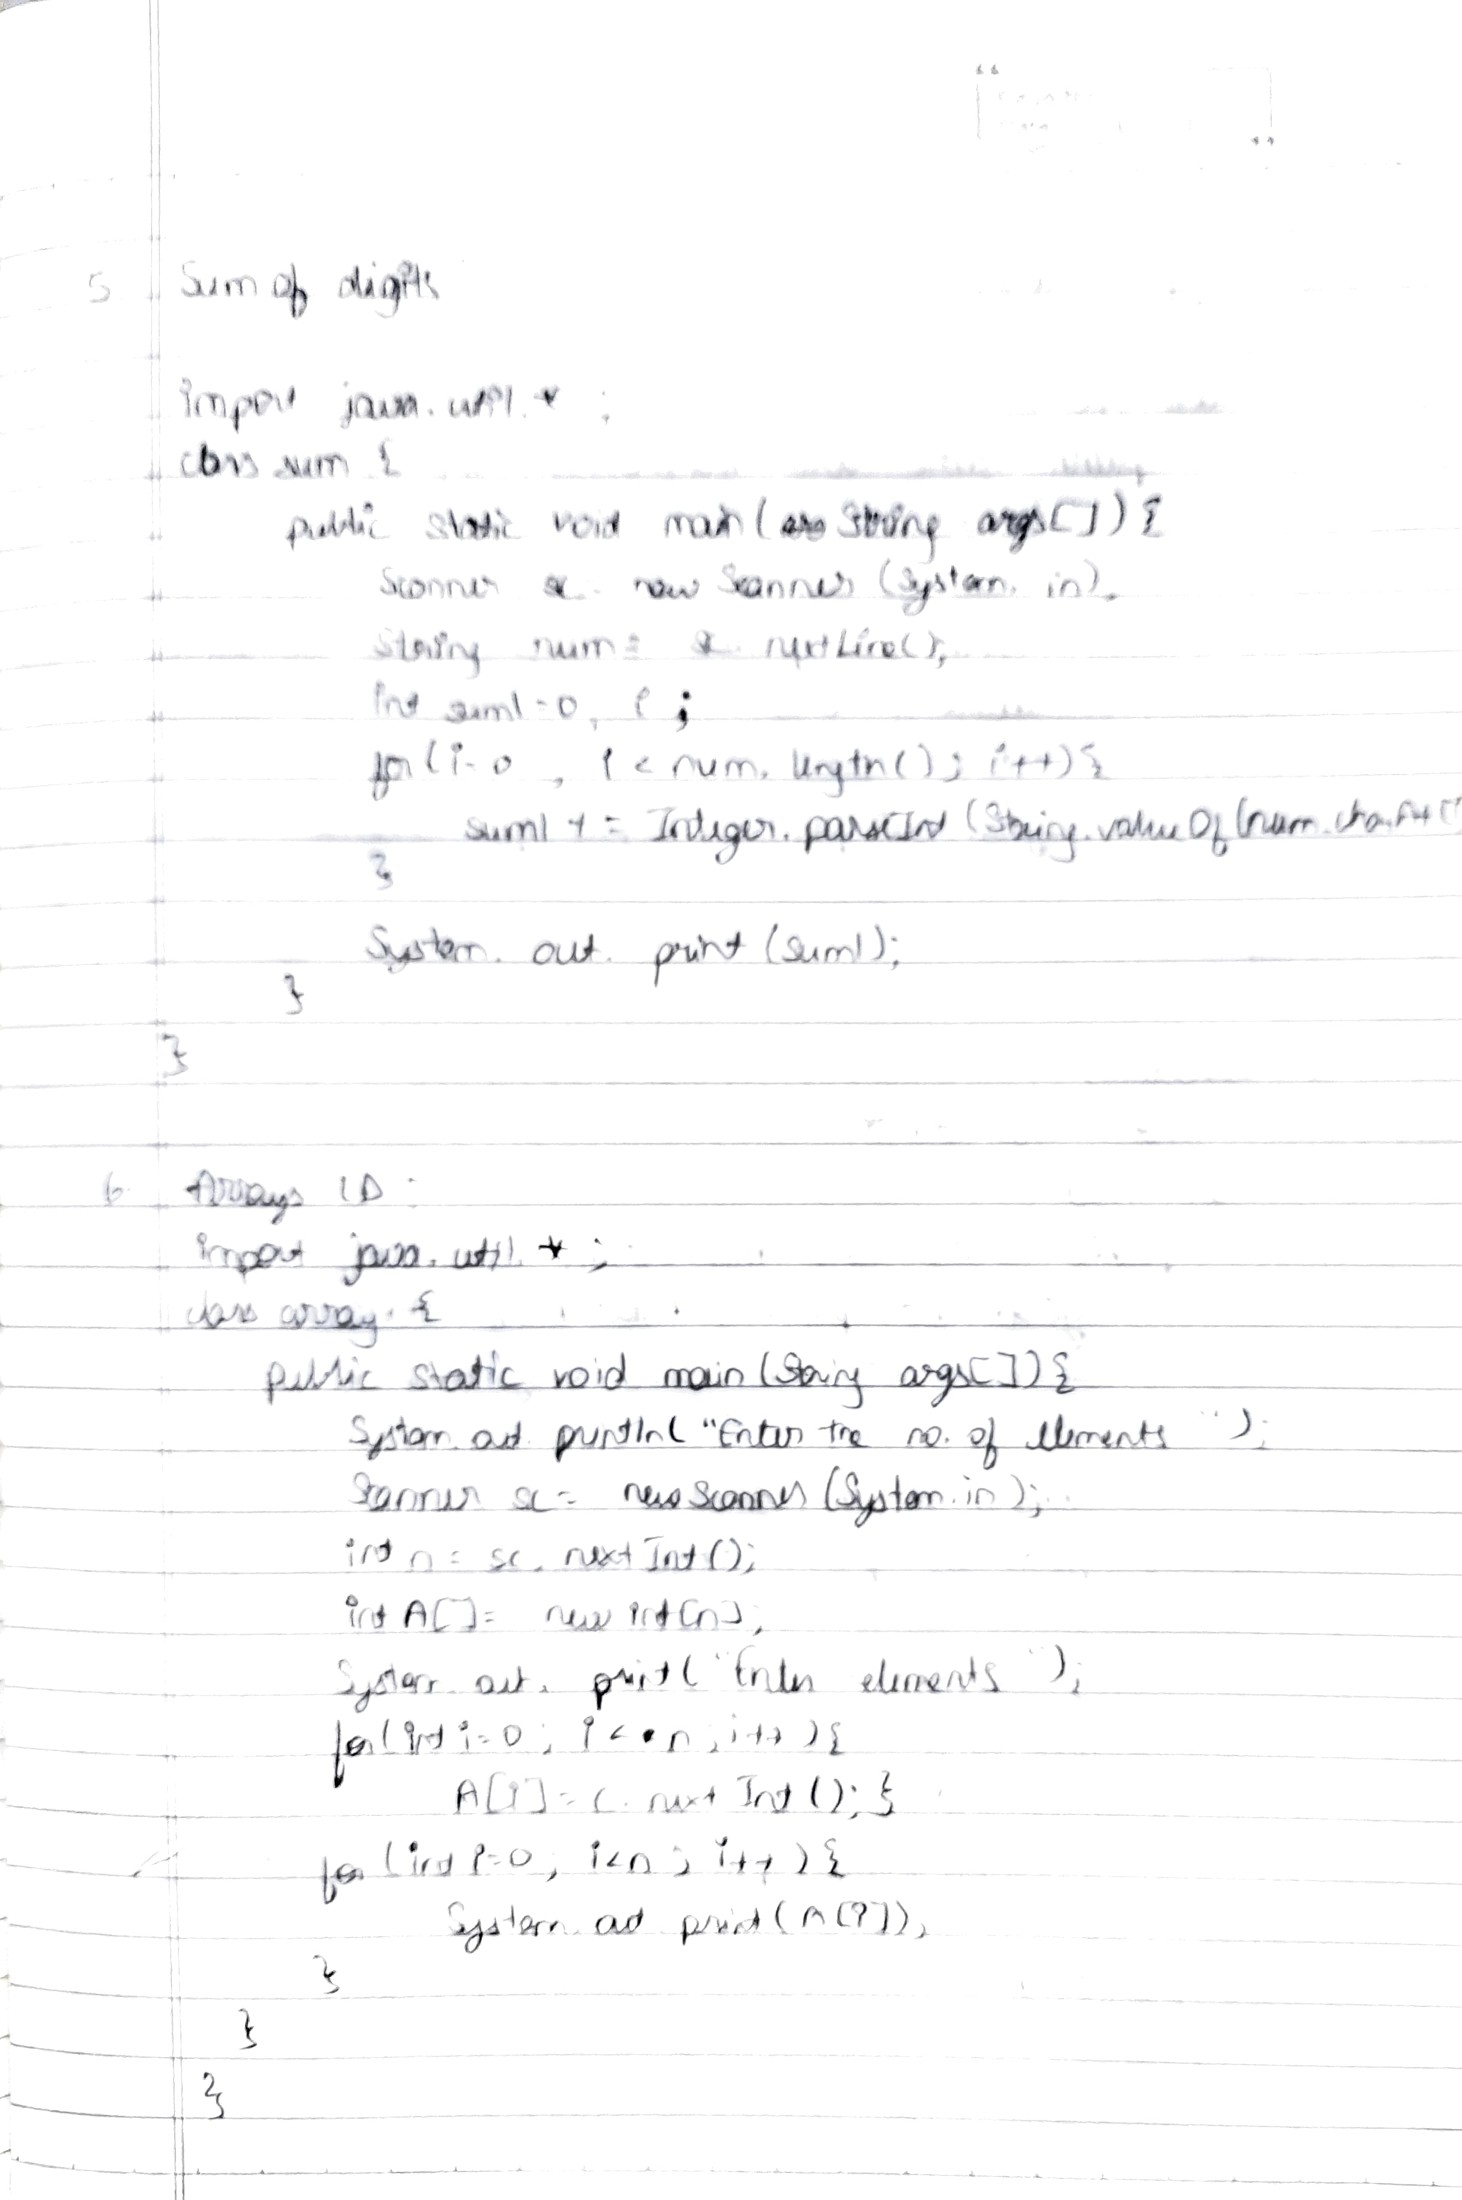 5 Sum of digits
import java.util.* ;
class sum {
public static void main( String args[]) {
Scanner sc = new Scanner (System. in).
String num = sc. nextLine();
int sum1 = 0, i ;
for(i=0 , i < num. length(); i++){
sum1 += Integer. parseInt (String.valueOf(num.charAt(
}
System. out. print (sum1);
}
}
6 Arrays 1D :
import java. util. * ;
class array {
public static void main (String args[]){
System. out. println( "Enter the no. of elements ");
Scanner sc = new Scanner (System.in);
int n = sc. nextInt();
int A[] = new int[n];
System. out. print( "Enter elements ");
for(int i=0; i < n; i++ ){
A[i] = c. next Int (); }
for (int i=0; i<n ; i++ ){
System. out print (A[i]),
}
}
}